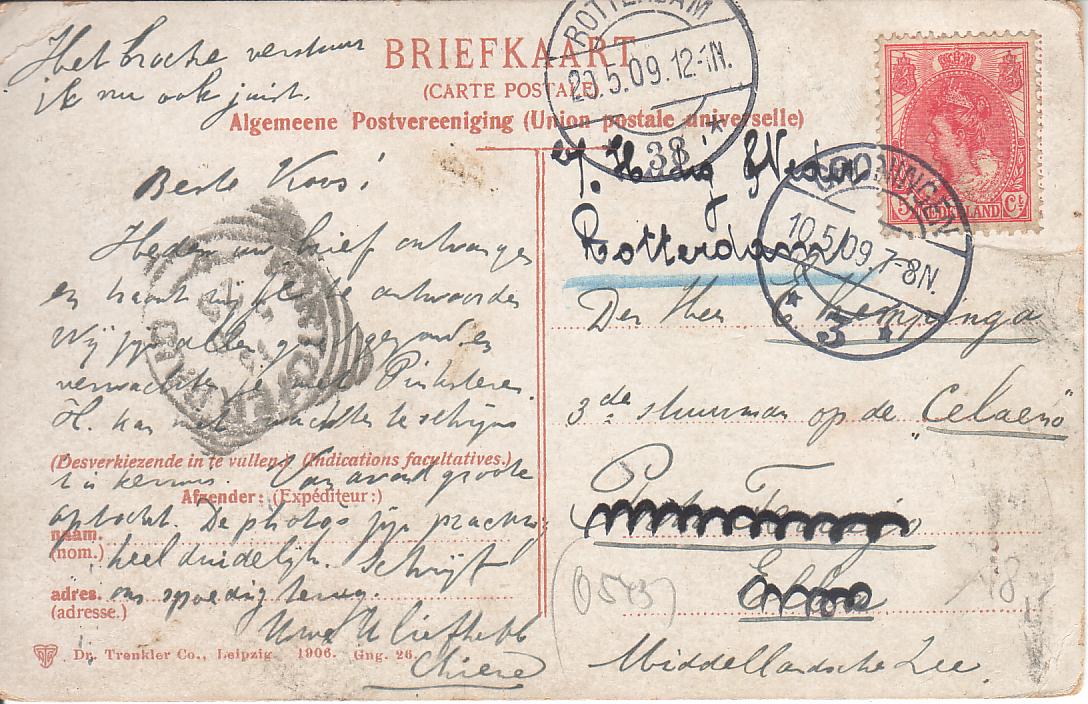 Het broche verstuur
ik nu ook juist.
BRIEFKAART
(CARTE POSTALE)
Algemeene Postvereeniging (Union postale universelle)
ROTTERDAM
20.5.09.12-1N.
38
GRONINGEN
10.5.09.7-8N.
3
5 Ct
NEDERLAND
Beste Koos!
Heden uw brief ontvangen
en haast mij je te antwoorden
Wij zijn allen gezond en
verwachten je met Pinksteren
H. kan niet wachten te schrijven
(Desverkiezende in te vullen) (Indications facultatives.)
kermis. Van avond groote
Afzender: (Expéditeur:)
optocht. De photos zijn prachtig
naam.
(nom.)
heel duidelijk. Schrijf
adres.
(adresse.)
ons spoedig terug.
Uwe U liefhebb
Dr. Trenkler Co., Leipzig. 1906. Gng. 26.
Rotterdam
Den Heer E Kempinga
3de stuurman op de "Celaeno"
Porto
Elba
(0543)
18
Middellandsche Zee